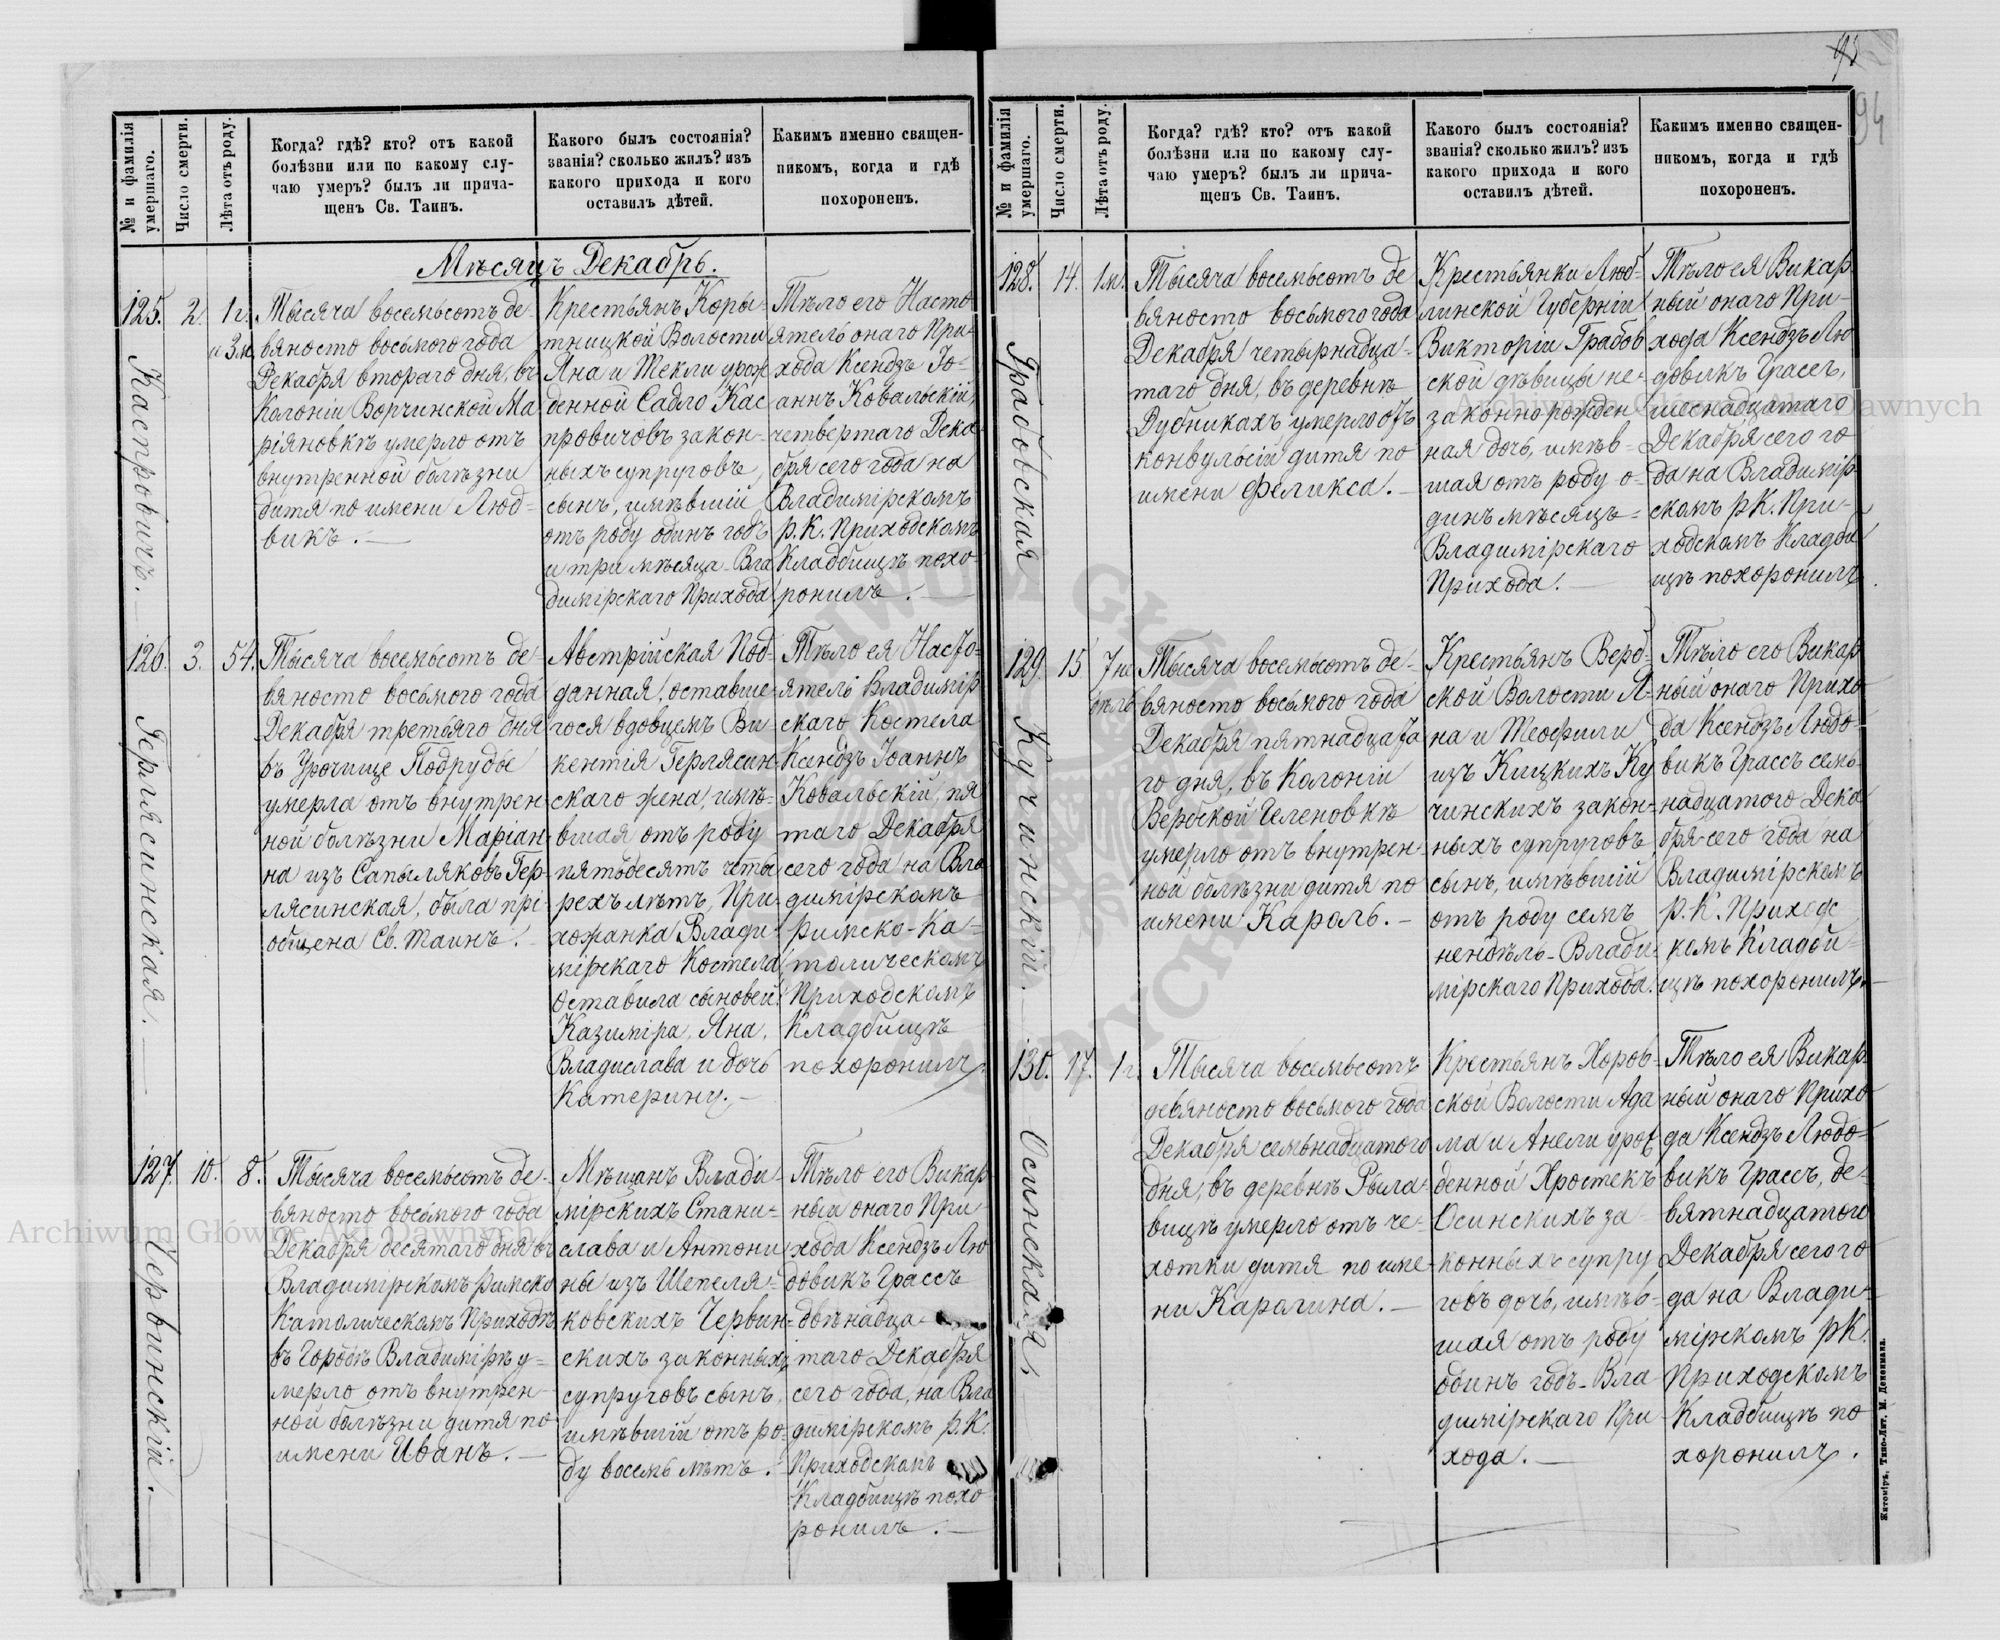 93
94
№ и фамилія умершаго.
Число смерти.
Лѣта отъ роду.
Когда? гдѣ? кто? отъ какой
болѣзни или по какому слу-
чаю умеръ? былъ ли прича-
щенъ Св. Таинъ.
Какого былъ состоянія?
званія? сколько жилъ? изъ
какого прихода и кого
оставилъ дѣтей.
Какимъ именно священ-
никомъ, когда и гдѣ
похороненъ.
Мѣсяцъ Декабрь.
125.
Каспровичъ.
2.
1 г.
и 3 м.
Тысяча восемьсотъ де-
вяносто восьмого года
Декабря втораго дня, въ
Колоніи Ворчинской Ма
ріяновкѣ умерло отъ
внутренной болѣзни
дитя по имени Люд-
викъ.
Крестьянъ Коры-
тницкой Волости
Яна и Текли урож
денной Садло Кас
провичовъ закон-
ныхъ супруговъ,
сынъ, имѣвшій
отъ роду одинъ годъ
и три мѣсяца - Вла
димірскаго Прихода
Тѣло его Насто
ятель онаго При-
хода Ксендзъ Іо-
аннъ Ковальскій,
четвертаго Дека-
бря сего года на
Владимірскомъ
р. К. Приходскомъ
Кладбищѣ похо-
ронилъ.
126.
Герлясинская.
3.
54.
Тысяча восемьсотъ де-
вяносто восьмого года
Декабря третьяго дня
въ Урочище Подрубье
умерла отъ внутрен
ной болѣзни Маріан-
на изъ Сапыляковъ Гер-
лясинская, была прі
общена Св. Таинъ.
Австрійская Под-
данная, оставше-
гося вдовцемъ Ви
кентія Герлясин-
скаго жена, имѣ-
вшая отъ роду
пятьдесятъ четы
рехъ лѣтъ, При-
хожанка Влади-
мірскаго Костела
Оставила сыновей
Казиміра, Яна,
Владислава и дочь
Катерину.
Тѣло ея Насто-
ятель Владимір
скаго Костела
Ксендзъ Іоаннъ
Ковальскій, пя
таго Декабря
сего года на Вла
димірскомъ
Римско-Ка-
толическомъ
Приходскомъ
Кладбищѣ
похоронилъ.
127.
Червинскій.
10.
8.
Тысяча восемьсотъ де-
вяносто восьмого года
Декабря десятаго дня въ
Владимірскомъ Римско
Католическомъ Приходѣ
въ Городѣ Владимірѣ у-
мерло отъ внутрен-
ной болѣзни дитя по
имени Иванъ.
Мѣщанъ Влади-
мірскихъ Стани-
слава и Антони
ны изъ Шепеля-
ковскихъ Червин-
скихъ законныхъ
супруговъ сынъ,
имѣвшій отъ ро-
ду восемь лѣтъ.
Тѣло его Викар
ный онаго При
хода Ксендзъ Лю
довикъ Грассъ
двѣнадца-
таго Декабря
сего года, на Вла
димірскомъ р. К.
Приходскомъ
Кладбищѣ похо
ронилъ.
№ и фамилія умершаго.
Число смерти.
Лѣта отъ роду.
Когда? гдѣ? кто? отъ какой
болѣзни или по какому слу-
чаю умеръ? былъ ли прича-
щенъ Св. Таинъ.
Какого былъ состоянія?
званія? сколько жилъ? изъ
какого прихода и кого
оставилъ дѣтей.
Какимъ именно священ-
никомъ, когда и гдѣ
похороненъ.
128.
Грабовская
14.
1 м.
Тысяча восемьсотъ де
вяносто восьмого года
Декабря четырнадца-
таго дня, въ деревнѣ
Дубникахъ умерло отъ
конвульсіи дитя по
имени Феликса.
Крестьянки Люб-
линской Губерніи
Викторіи Грабов
ской дѣвицы не-
законнорожден
ная дочь, имѣв-
шая отъ роду о-
динъ мѣсяцъ -
Владимірскаго
Прихода.
Тѣло ея Викар
ный онаго При-
хода Ксендзъ Лю
довикъ Грассъ,
шеснадцатаго
Декабря сего го
да на Владимір
скомъ р. К. При-
ходскомъ Кладби
щѣ похоронилъ.
129.
Кучинскій.
15
7 не
дѣль
Тысяча восемьсотъ де-
вяносто восьмого года
Декабря пятнадцата
го дня, въ Колоніи
Вербской Геленовкѣ
умерло отъ внутрен-
ной болѣзни дитя по
имени Кароль.
Крестьянъ Верб-
ской Волости Я-
на и Теофили
изъ Кицкихъ Ку
чинскихъ закон-
ныхъ супруговъ,
сынъ, имѣвшій
отъ роду семъ
нендѣль - Влади-
мірскаго Прихода.
Тѣло его Викар
ный онаго Прихо
да Ксендзъ Людо-
викъ Грассъ семь-
надцатого Дека
бря сего года на
Владимірскомъ
р. К. Приходс
комъ Кладби-
щѣ похоронилъ.
130.
Осинская.
17.
1 г.
Тысяча восемьсотъ
девяносто восьмого года
Декабря семьнадцатого
дня, въ деревнѣ Рыла-
вицѣ умерло отъ че-
хотки дитя по име-
ни Каролина.
Крестьянъ Хоров-
ской Волости Ада
ма и Анели урож
денной Хростекъ
Осинскихъ за-
конныхъ супру
говъ дочь, имѣв-
шая отъ роду
одинъ годъ - Вла
димірскаго При
хода.
Тѣло ея Викар
ный онаго Прихо
да Ксендзъ Людо-
викъ Грассъ, де-
вятнадцатого
Декабря сего го
да на Влади-
мірскомъ р К.
Приходскомъ
Кладбищѣ по
хоронилъ.
Житоміръ, Типо-Лит. М. Дененмана.
Archiwum Główne Akt Dawnych
Archiwum Główne Akt Dawnych